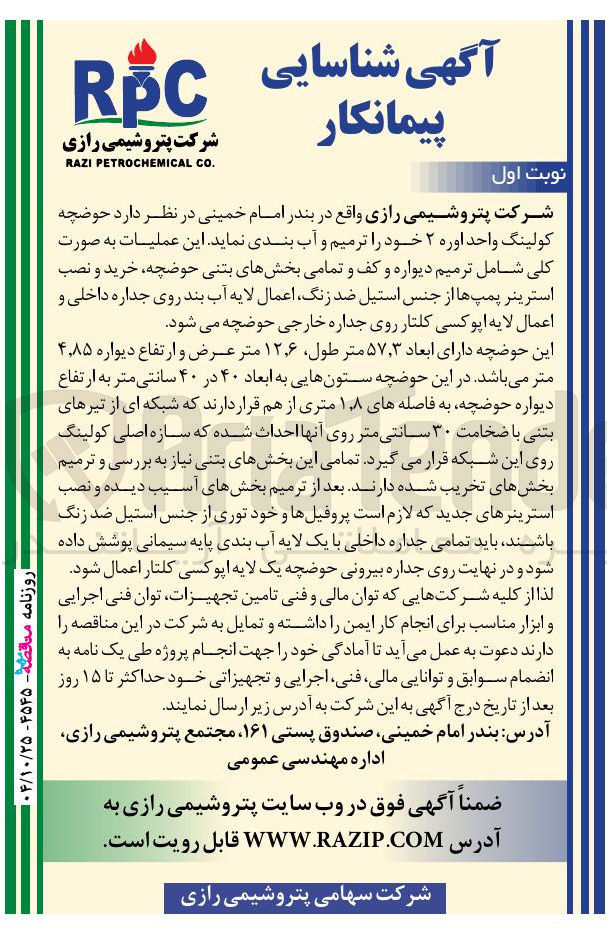 آگهی شناسایی
پیمانکار
RPC
شرکت پتروشیمی رازی
RAZI PETROCHEMICAL CO.
نوبت اول
شرکت پتروشیمی رازی واقع در بندر امام خمینی در نظر دارد حوضچه
کولینگ واحد اوره ۲ خود را ترمیم و آب بندی نماید. این عملیات به صورت
کلی شامل ترمیم دیواره و کف و تمامی بخش‌های بتنی حوضچه، خرید و نصب
استرینر پمپ‌ها از جنس استیل ضد زنگ، اعمال لایه آب بند روی جداره داخلی و
اعمال لایه اپوکسی کلتار روی جداره خارجی حوضچه می شود.
این حوضچه دارای ابعاد ۵۷,۳ متر طول، ۱۲,۶ متر عرض و ارتفاع دیواره ۴,۸۵
متر می‌باشد. در این حوضچه ستون‌هایی به ابعاد ۴۰ در ۴۰ سانتی‌متر به ارتفاع
دیواره حوضچه، به فاصله های ۱,۸ متری از هم قرار دارند که شبکه ای از تیرهای
بتنی با ضخامت ۳۰ سانتی‌متر روی آنها احداث شده که سازه اصلی کولینگ
روی این شبکه قرار می گیرد. تمامی این بخش‌های بتنی نیاز به بررسی و ترمیم
بخش‌های تخریب شده دارند. بعد از ترمیم بخش‌های آسیب دیده و نصب
استرینرهای جدید که لازم است پروفیل‌ها و خود توری از جنس استیل ضد زنگ
باشند، باید تمامی جداره داخلی با یک لایه آب بندی پایه سیمانی پوشش داده
شود و در نهایت روی جداره بیرونی حوضچه یک لایه اپوکسی کلتار اعمال شود.
لذا از کلیه شرکت‌هایی که توان مالی و فنی تامین تجهیزات، توان فنی اجرایی
و ابزار مناسب برای انجام کار ایمن را داشته و تمایل به شرکت در این مناقصه را
دارند دعوت به عمل می‌آید تا آمادگی خود را جهت انجام پروژه طی یک نامه به
انضمام سوابق و توانایی مالی، فنی، اجرایی و تجهیزاتی خود حداکثر تا ۱۵ روز
بعد از تاریخ درج آگهی به این شرکت به آدرس زیر ارسال نمایند.
آدرس: بندر امام خمینی، صندوق پستی ۱۶۱، مجتمع پتروشیمی رازی،
اداره مهندسی عمومی
ضمناً آگهی فوق در وب سایت پتروشیمی رازی به
آدرس WWW.RAZIP.COM قابل رویت است.
شرکت سهامی پتروشیمی رازی
روزنامه مناقصه - ۴۵۴۵ - ۰۴/۱۰/۲۵